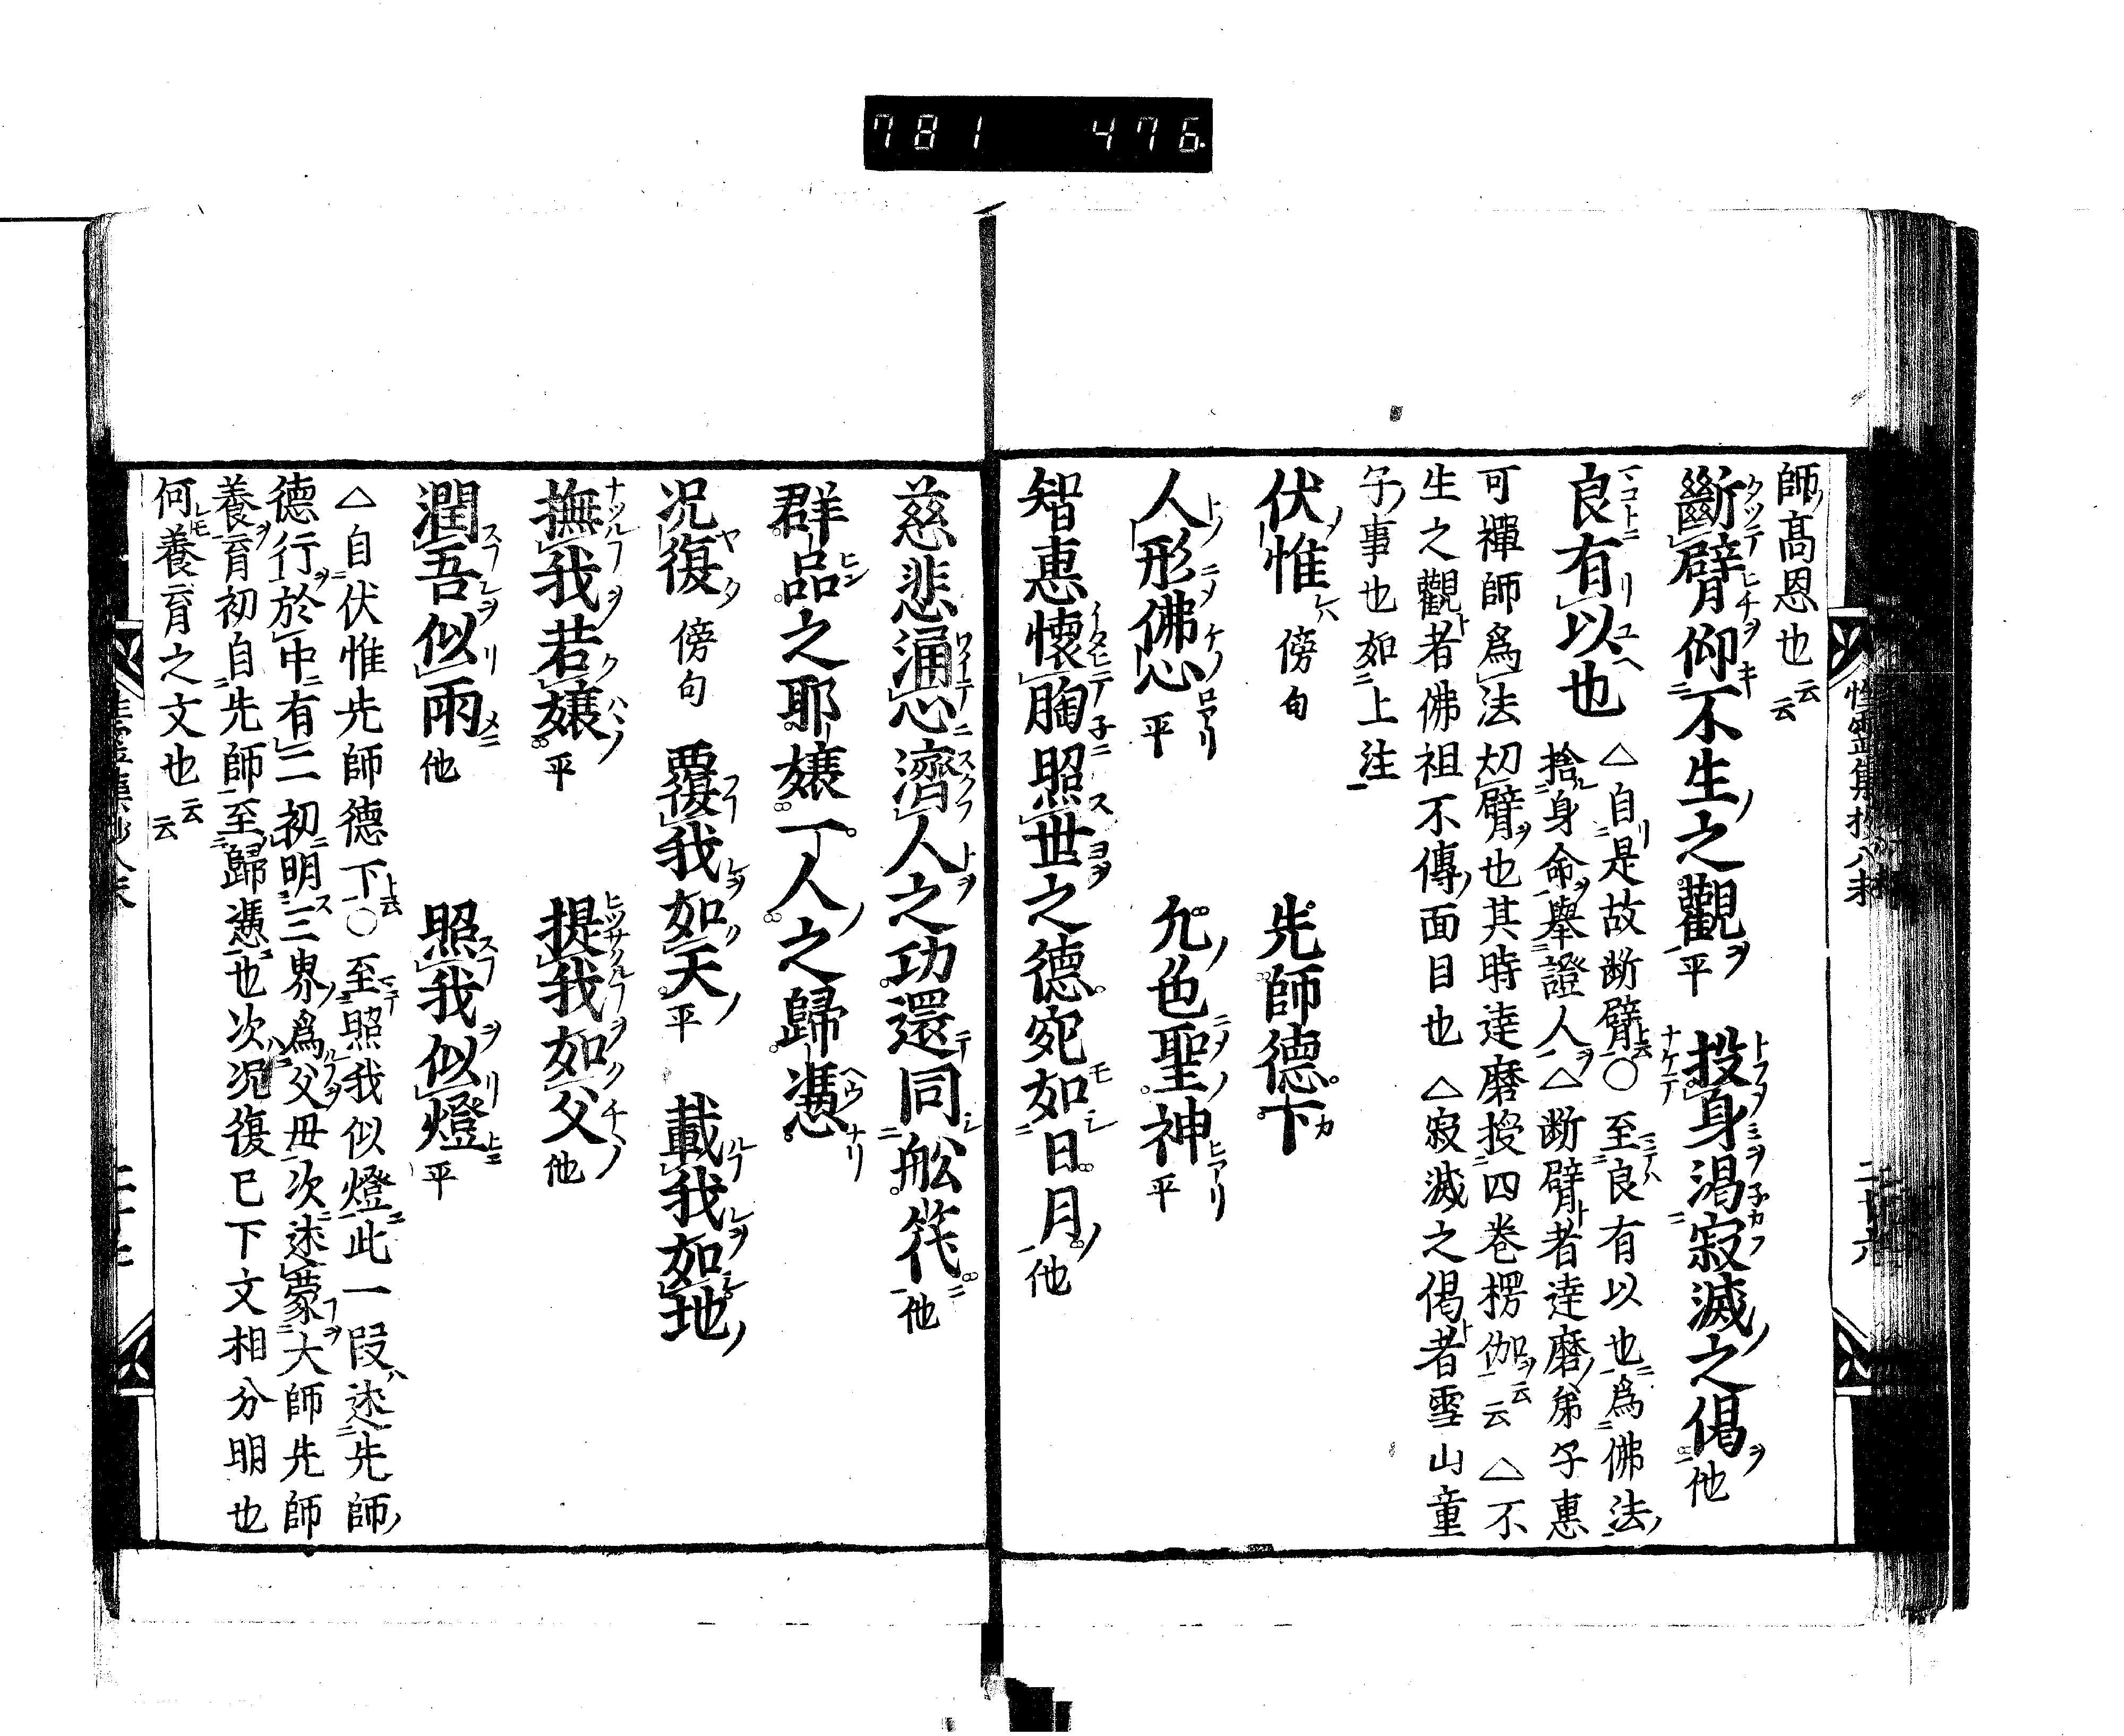 781 476
師高恩也云云
斷臂仰不生之觀平 投身渇寂滅之偈他
良有以也 △自是故断臂○至良有以也為佛法
捨身命舉證人△断臂者逹磨弟子惠
可禪師為法刧臂也其時逹磨授四巻楞伽云云△不
生之觀者佛祖不傳面目也 △寂滅之偈者雪山童
子事也如上注
伏惟 傍句 先師德下
人形佛心平 九色聖神平
智惠懷胸照世之德宛如日月他
慈悲涌心濟人之功還同舩筏他
群品之耶孃一人之歸憑
况復 傍句 覆我如天平 載我如地
撫我若孃平 提我如父他
潤吾似雨他 照我似燈平
△自伏惟先師德下○至照我似燈此一段述先師
德行於中有二初明三界為父母次述蒙大師先師
養育初自先師至歸憑也次况復已下文相分明也
何養育之文也云云